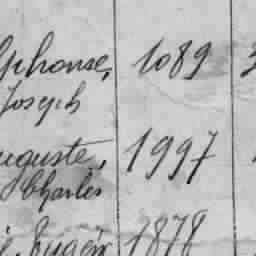 Alphonse, 1089
Joseph
Auguste, 1997
Charles
Eugèn 1878